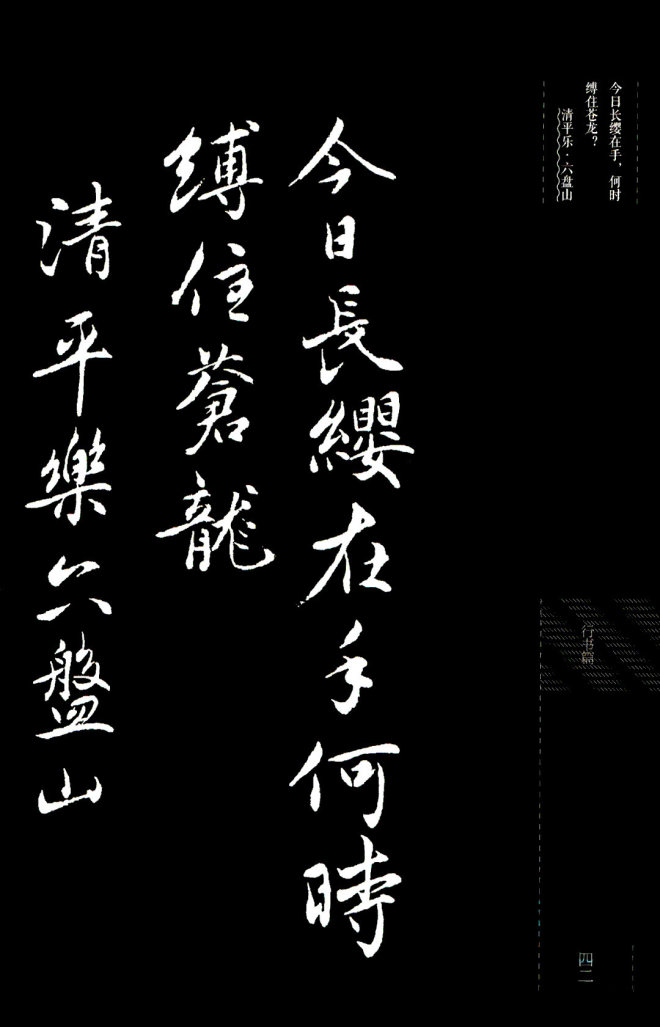 今日长缨在手，何时
缚住苍龙？
清平乐·六盘山
今日長纓在手何時
縛住蒼龍
清平樂六盤山
行书篇
四二